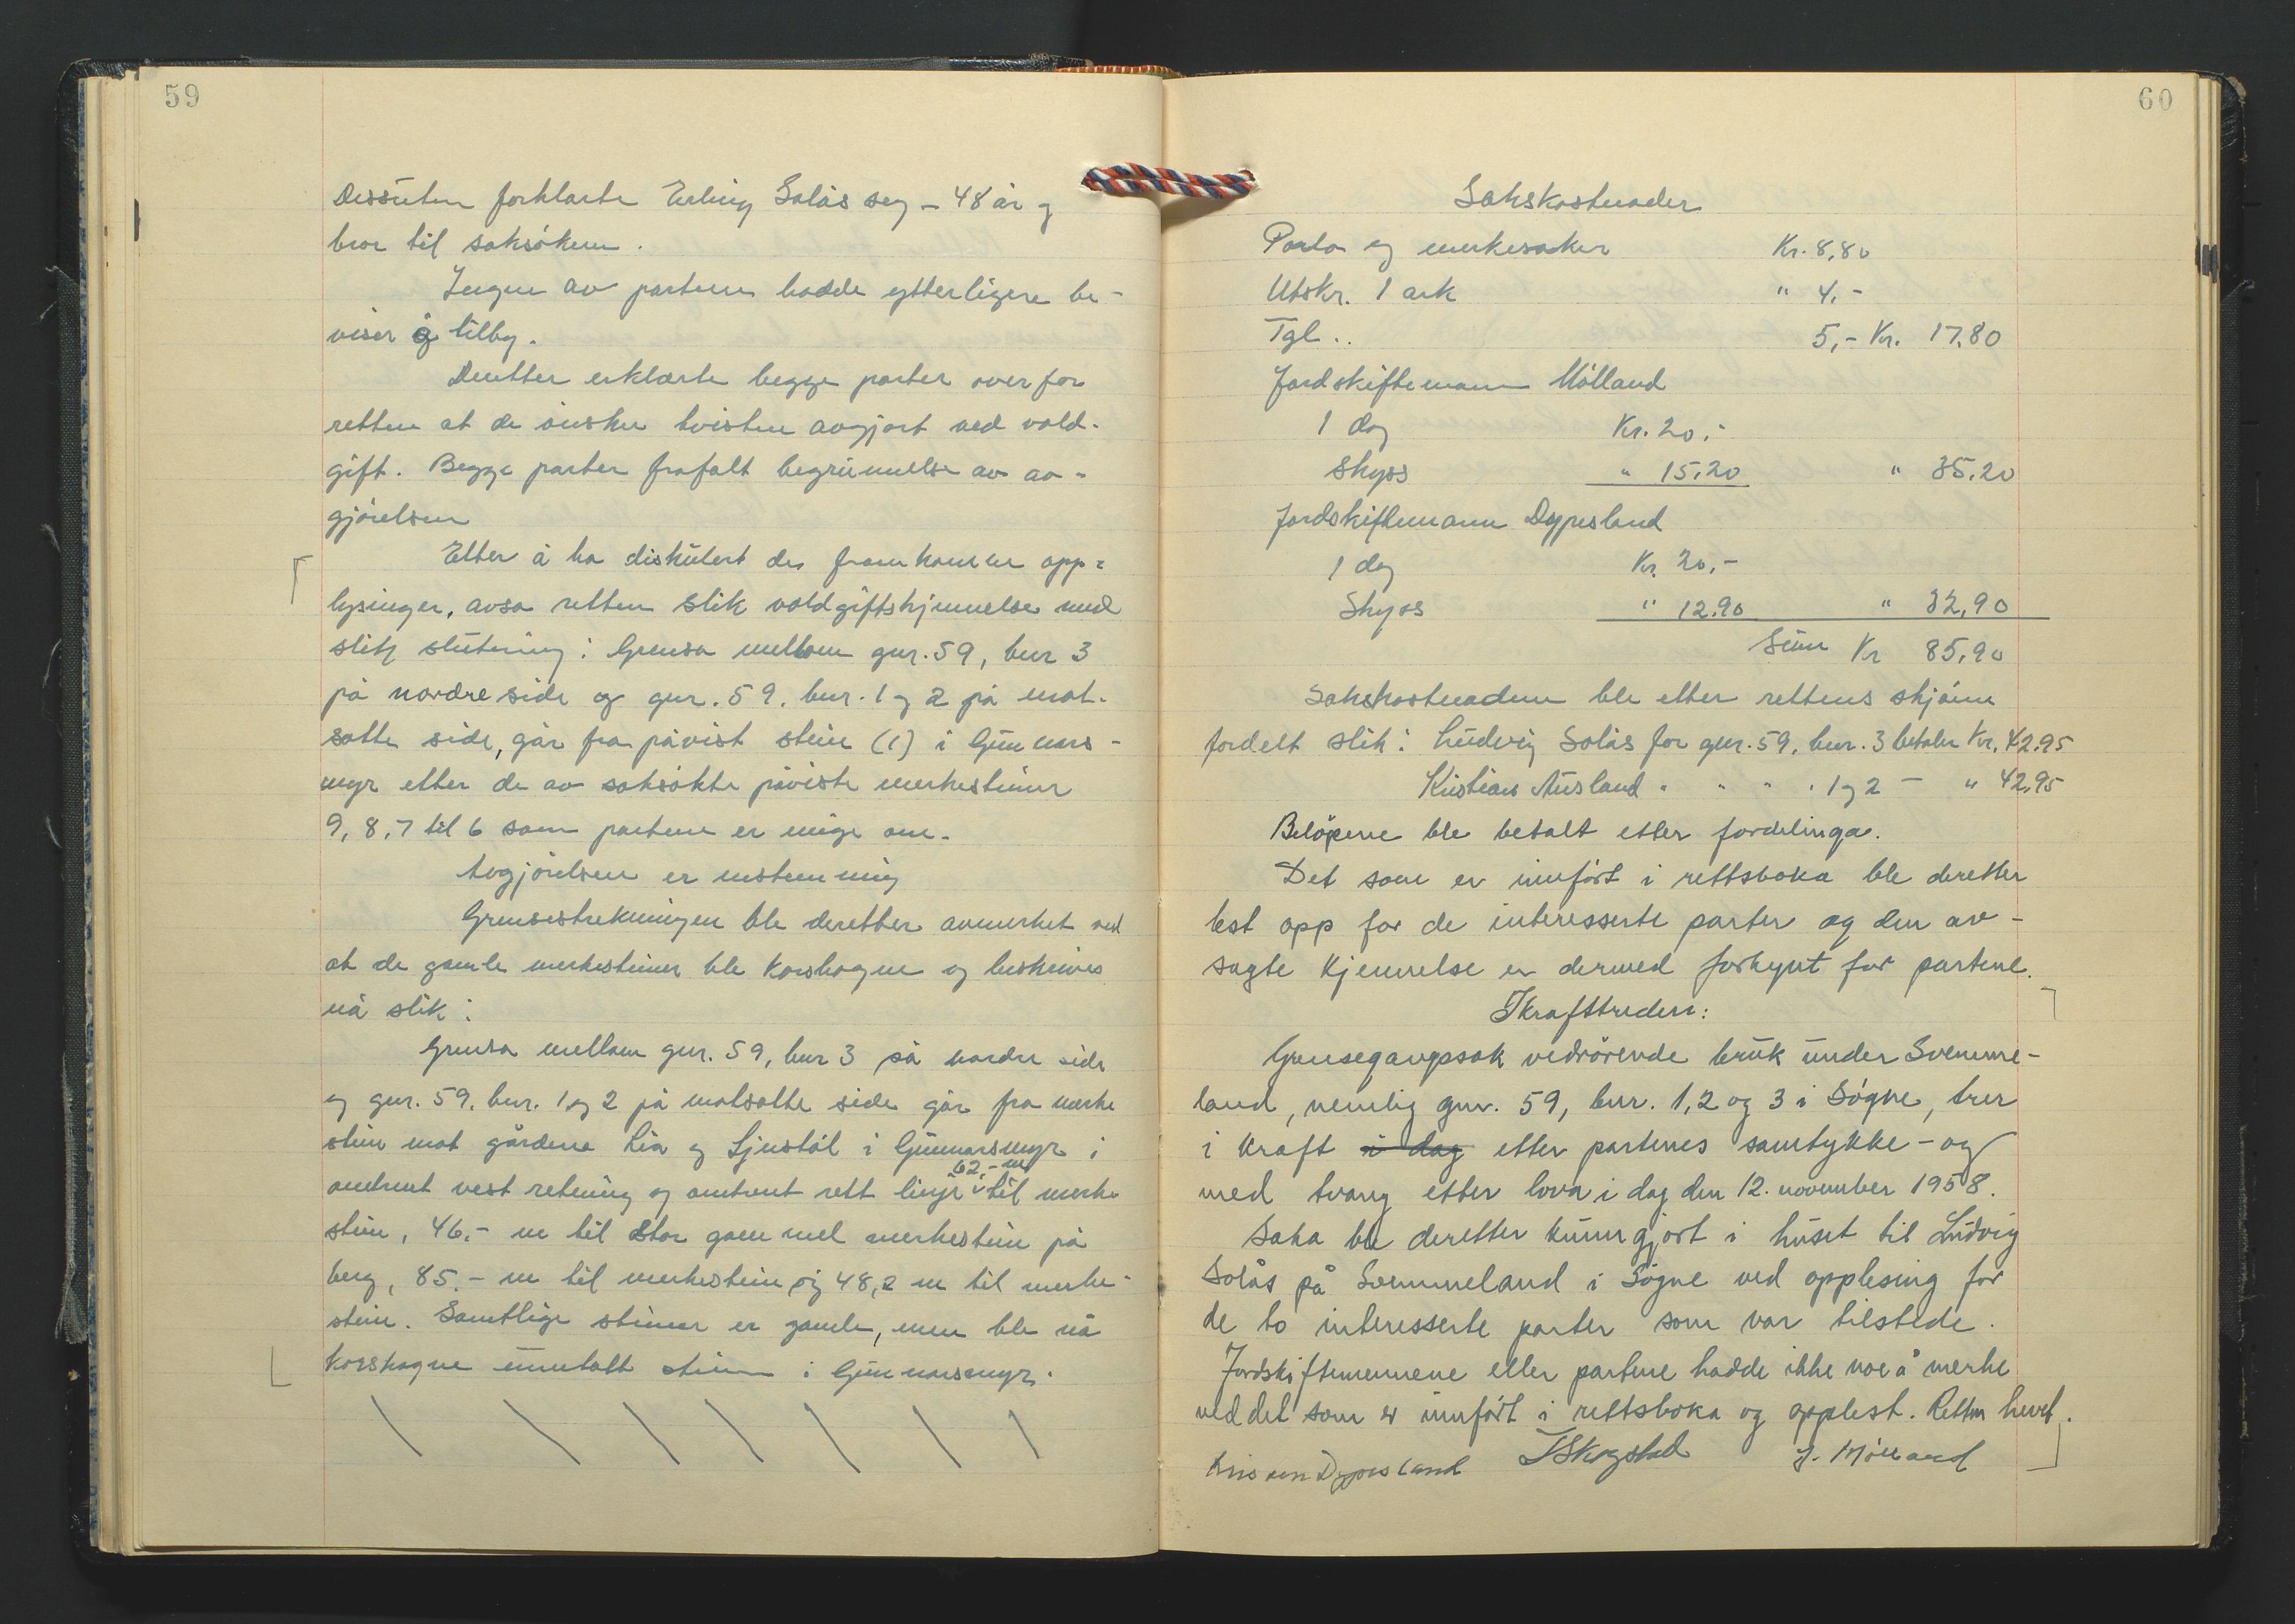 59
Dessuten forklarte Erling Solås seg - 48 år og
bror til saksøkeren.
Ingen av partene hadde ytterligere be-
viser å tilby.
Deretter erklærte begge parter overfor
retten at de ønsker tvisten avgjort ved vold-
gift. Begge parter frafalt begrunnelse av av-
gjørelsen
Etter å ha diskutert de framkomne opp-
lysinger, avsa retten slik voldgiftskjennelse med
slik slutning: Grensa mellom gnr. 59, bnr 3
på nordre side og gnr. 59, bnr. 1 og 2 på mot-
satte side, går fra påvist stein (1) i Gunnars-
myr etter de av saksøkte påviste merkesteiner
9, 8, 7 til 6 som partene er enige om.
Avgjørelsen er enstemmig
Grensestrekningen ble deretter avmerket ved
at de gamle merkesteiner ble korshogne og beskrives
nå slik:
Grensa mellom gnr. 59, bnr 3 på nordre side
og gnr. 59, bnr. 1 og 2 på motsatte side går fra merke
stein mot gårdene Lia og Ljostøl i Gunnarsmyr i
omtrent vest retning og omtrent rett linje 62,- m til merke
stein, 46,- m til stor gammel merkestein på
berg, 85,- m til merkestein og 48,2 m til merke-
stein. Samtlige steiner er gamle, men ble nå
korshogne unntatt steinen i Gunnarsmyr.
60
Sakskostnader
Porto og merkesaker Kr. 8,80
Utskr. 1 ark " 4,-
Tgl .. 5,- Kr. 17,80
Jordskiftemann Mølland
1 dag Kr. 20,-
Skyss " 15,20 " 35,20
Jordskiftemann Dypesland
1 dag Kr. 20,-
Skyss " 12.90 " 32,90
Sum Kr 85,90
Sakskostnadene ble etter rettens skjønn
fordelt slik: Ludvig Solås for gnr. 59, bnr. 3 betaler Kr. 42.95
Kristian Ausland " " " " 1 og 2 - " 42,95
Beløpene ble betalt etter fordelinga.
Det som er innført i rettsboka ble deretter
lest opp for de interesserte parter og den av-
sagte kjennelse er dermed forkynt for partene.
Ikrafttreden:
Grensegangssak vedrørende bruk under Svemme-
land, nemlig gnr. 59, bnr. 1, 2 og 3 i Søgne, trer
i kraft i dag etter partenes samtykke - og
med tvang etter lova i dag den 12. november 1958.
Saka ble deretter kunngjort i huset til Ludvig
Solås på Svemmeland i Søgne ved opplesing for
de to interesserte parter som var tilstede.
Jordskiftemennene eller partene hadde ikke noe å merke
ved det som er innført i rettsboka og opplest. Retten hevet.
Dypesland TSkogstad J. Mølland